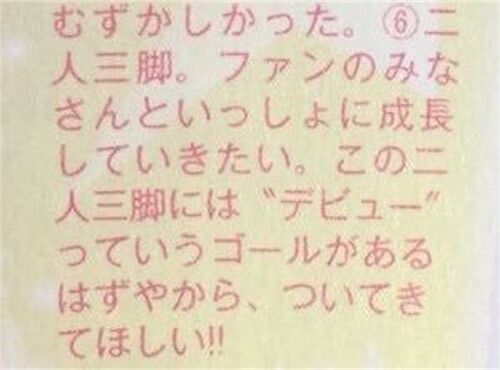 むずかしかった。⑥二
人三脚。ファンのみな
さんといっしょに成長
していきたい。この二
人三脚には〝デビュー〟
っていうゴールがある
はずやから、ついてき
てほしい!!